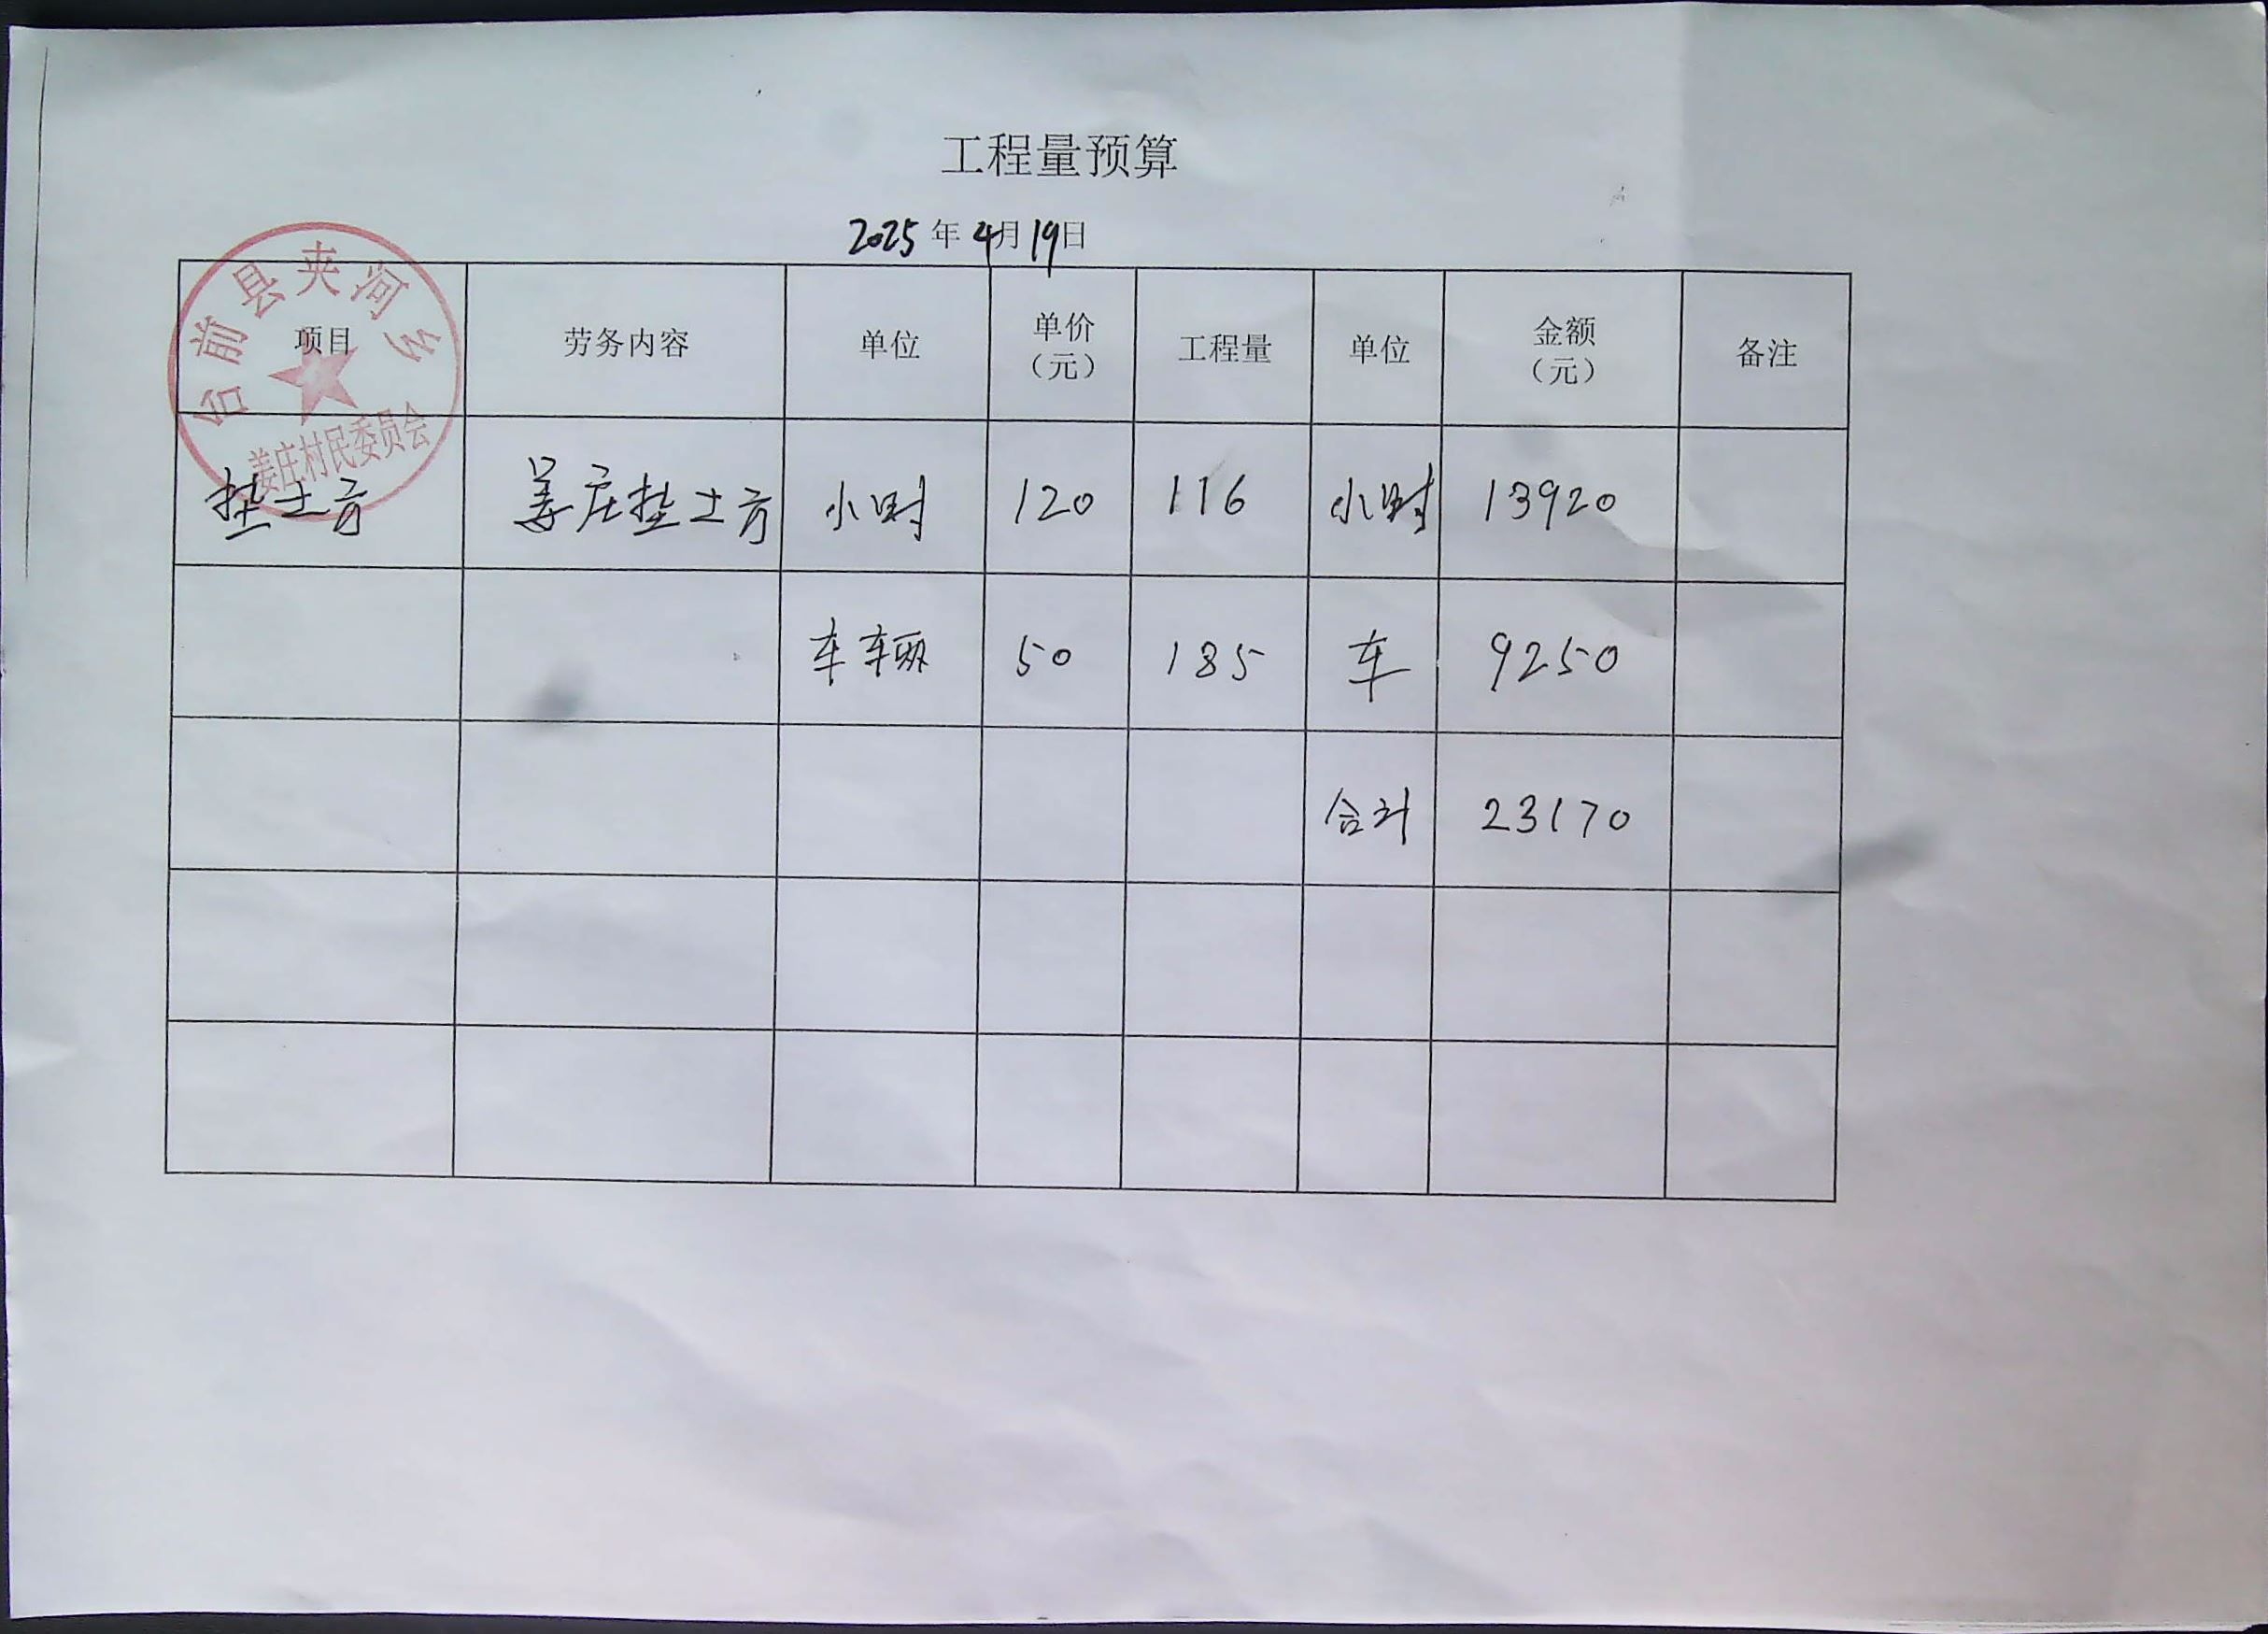 工程量预算
2025年4月19日
台前县夹河乡
姜庄村民委员会
项目 劳务内容 单位 单价（元） 工程量 单位 金额（元） 备注
垫土方 姜庄垫土方 小时 120 116 小时 13920
车辆 50 185 车 9250
合计 23170